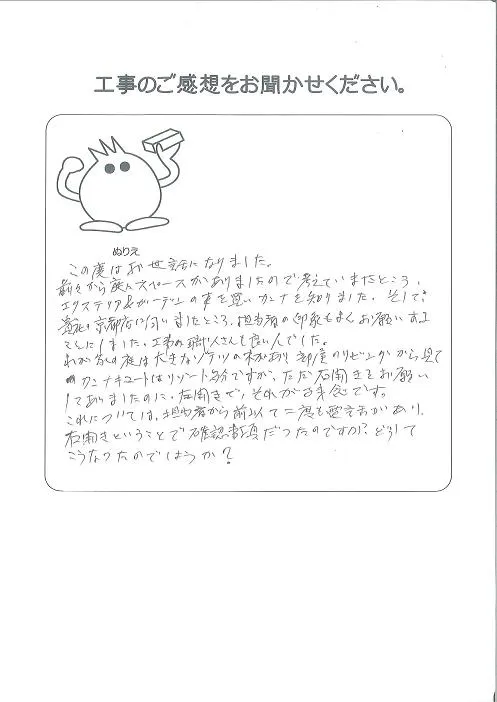 工事のご感想をお聞かせください。
ぬりえ
この度はお世話になりました。
前々から庭にスペースがありましたので考えていましたところ、
エクステリア&ガーデンの本を買いカンナを知りました。そして
京都店に伺いましたところ、担当者の印象もよく、お願いする
ことにしました。工事の職人さんも良い人でした。
わが家の庭は大きなソテツの木があり部屋のリビングから見て
カンナキュートはリゾート気分ですが、ただ右開きをお願い
してありましたのに、左開きで、それが残念です。
これについては、担当者から前以て二度も電話があり、
右開きということで確認済だったのですが? どうして
こうなったのでしょうか?